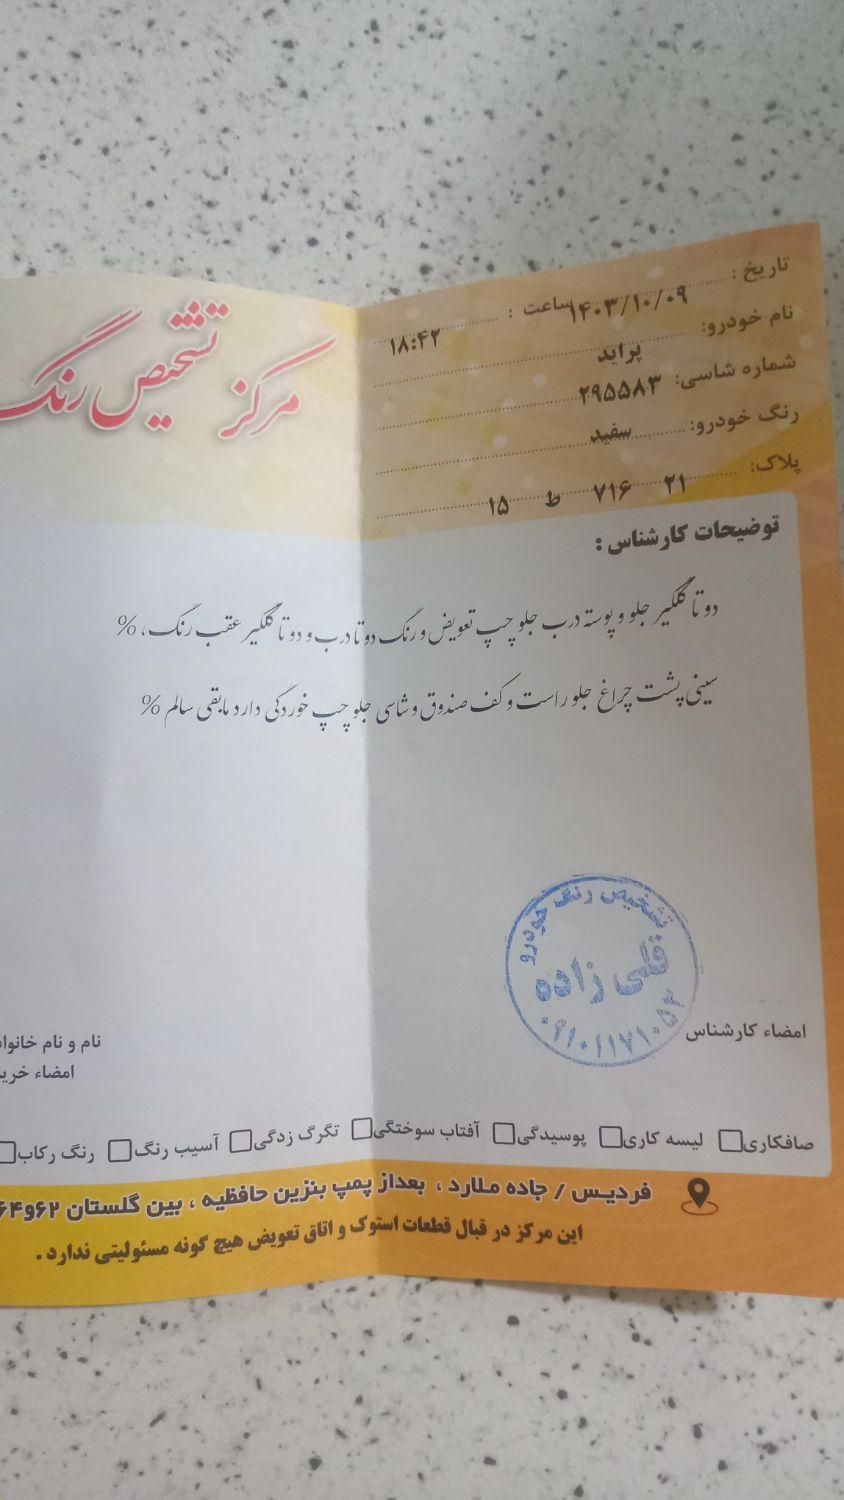 مرکز تشخیص رنگ
تاریخ : ۱۴۰۳/۱۰/۰۹ ساعت : ۱۸:۴۲
نام خودرو: پراید
شماره شاسی: ۲۹۵۵۸۳
رنگ خودرو: سفید
پلاک: ۲۱ ۷۱۶ ط ۱۵
توضیحات کارشناس :
دو تا گلگیر جلو و پوسته درب جلو چپ تعویض و رنگ دو تا درب و دو تا گلگیر عقب رنگ ، %
سینی پشت چراغ جلو راست و کف صندوق و شاسی جلو چپ خوردگی دارد مابقی سالم %
تشخیص رنگ خودرو
قلی زاده
۰۹۱۰۱۱۷۱۰۵۳
امضاء کارشناس
نام و نام
امضاء
صافکاری لیسه کاری پوسیدگی آفتاب سوختگی تگرگ زدگی آسیب رنگ رنگ رکاب
فردیس / جاده ملارد ، بعداز پمپ بنزین حافظیه ، بین گلستان ۶۲و۶۴
این مرکز در قبال قطعات استوک و اتاق تعویض هیچ گونه مسئولیتی ندارد .